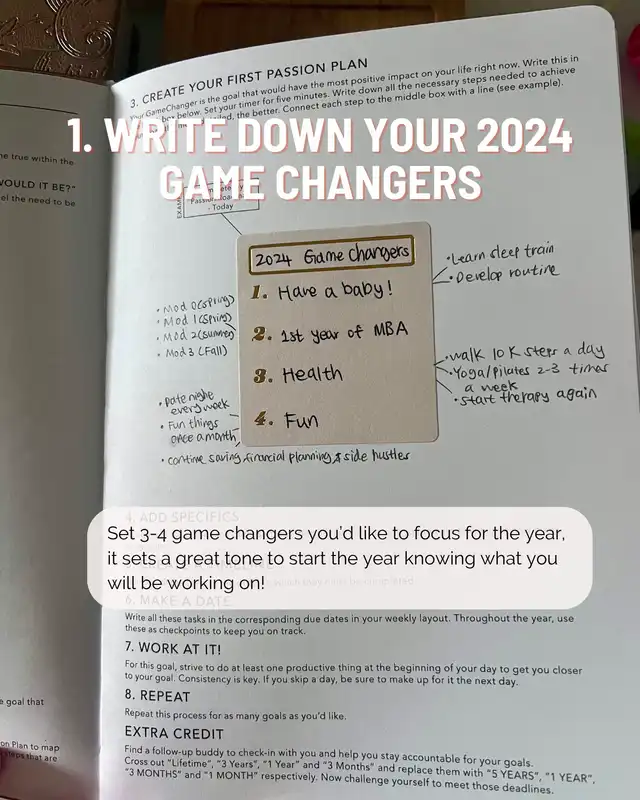 3. CREATE YOUR FIRST PASSION PLAN
Your GameChanger is the goal that would have the most positive impact on your life right now. Write this in
box below. Set your timer for five minutes. Write down all the necessary steps needed to achieve
the better. Connect each step to the middle box with a line (see example).
1. WRITE DOWN YOUR 2024
GAME CHANGERS
e true within the
WOULD IT BE?"
el the need to be
Today
2024 Game Changers
1. Have a baby!
2. 1st year of MBA
3. Health
4. Fun
• Learn sleep train
• Develop routine
• Mod 0 (Spring)
• Mod 1 (Spring)
• Mod 2 (Summer)
• Mod 3 (Fall)
• Walk 10K steps a day
• Yoga/Pilates 2-3 times
a week
• Start therapy again
• Date night
every week
• Fun things
once a month
• Continue saving, financial planning & side hustles
4. ADD SPECIFICS
Set 3-4 game changers you'd like to focus for the year,
it sets a great tone to start the year knowing what you
will be working on!
6. MAKE A DATE
Write all these tasks in the corresponding due dates in your weekly layout. Throughout the year, use
these as checkpoints to keep you on track.
7. WORK AT IT!
For this goal, strive to do at least one productive thing at the beginning of your day to get you closer
to your goal. Consistency is key. If you skip a day, be sure to make up for it the next day.
8. REPEAT
Repeat this process for as many goals as you'd like.
EXTRA CREDIT
Find a follow-up buddy to check-in with you and help you stay accountable for your goals.
Cross out "Lifetime", "3 Years", "1 Year" and "3 Months" and replace them with "5 YEARS", "1 YEAR",
"3 MONTHS" and "1 MONTH" respectively. Now challenge yourself to meet those deadlines.
e goal that
on Plan to map
steps that are